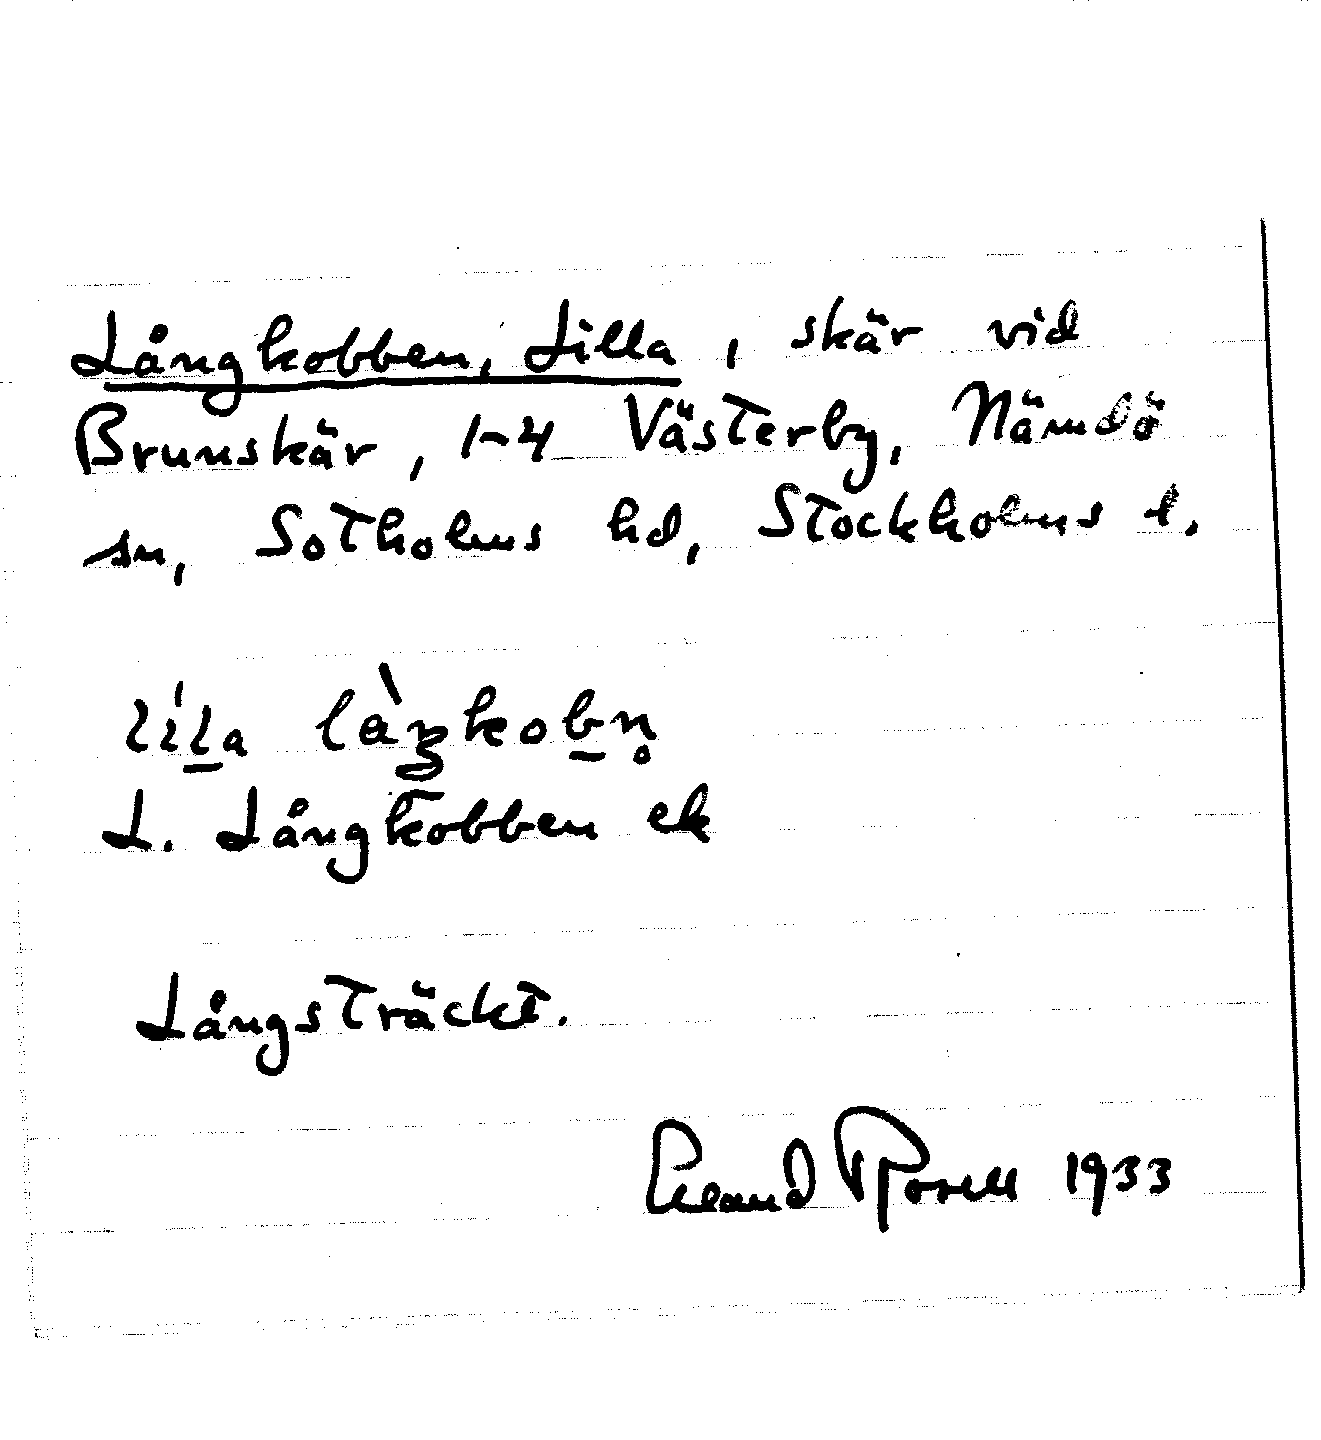 Långkobben, Lilla, skär vid
Brunskär, 1-4 Västerby, Nämdö
sn, Sotholms hd, Stockholms l.
L. Långkobben ek
Långsträckt.
Rosell 1933